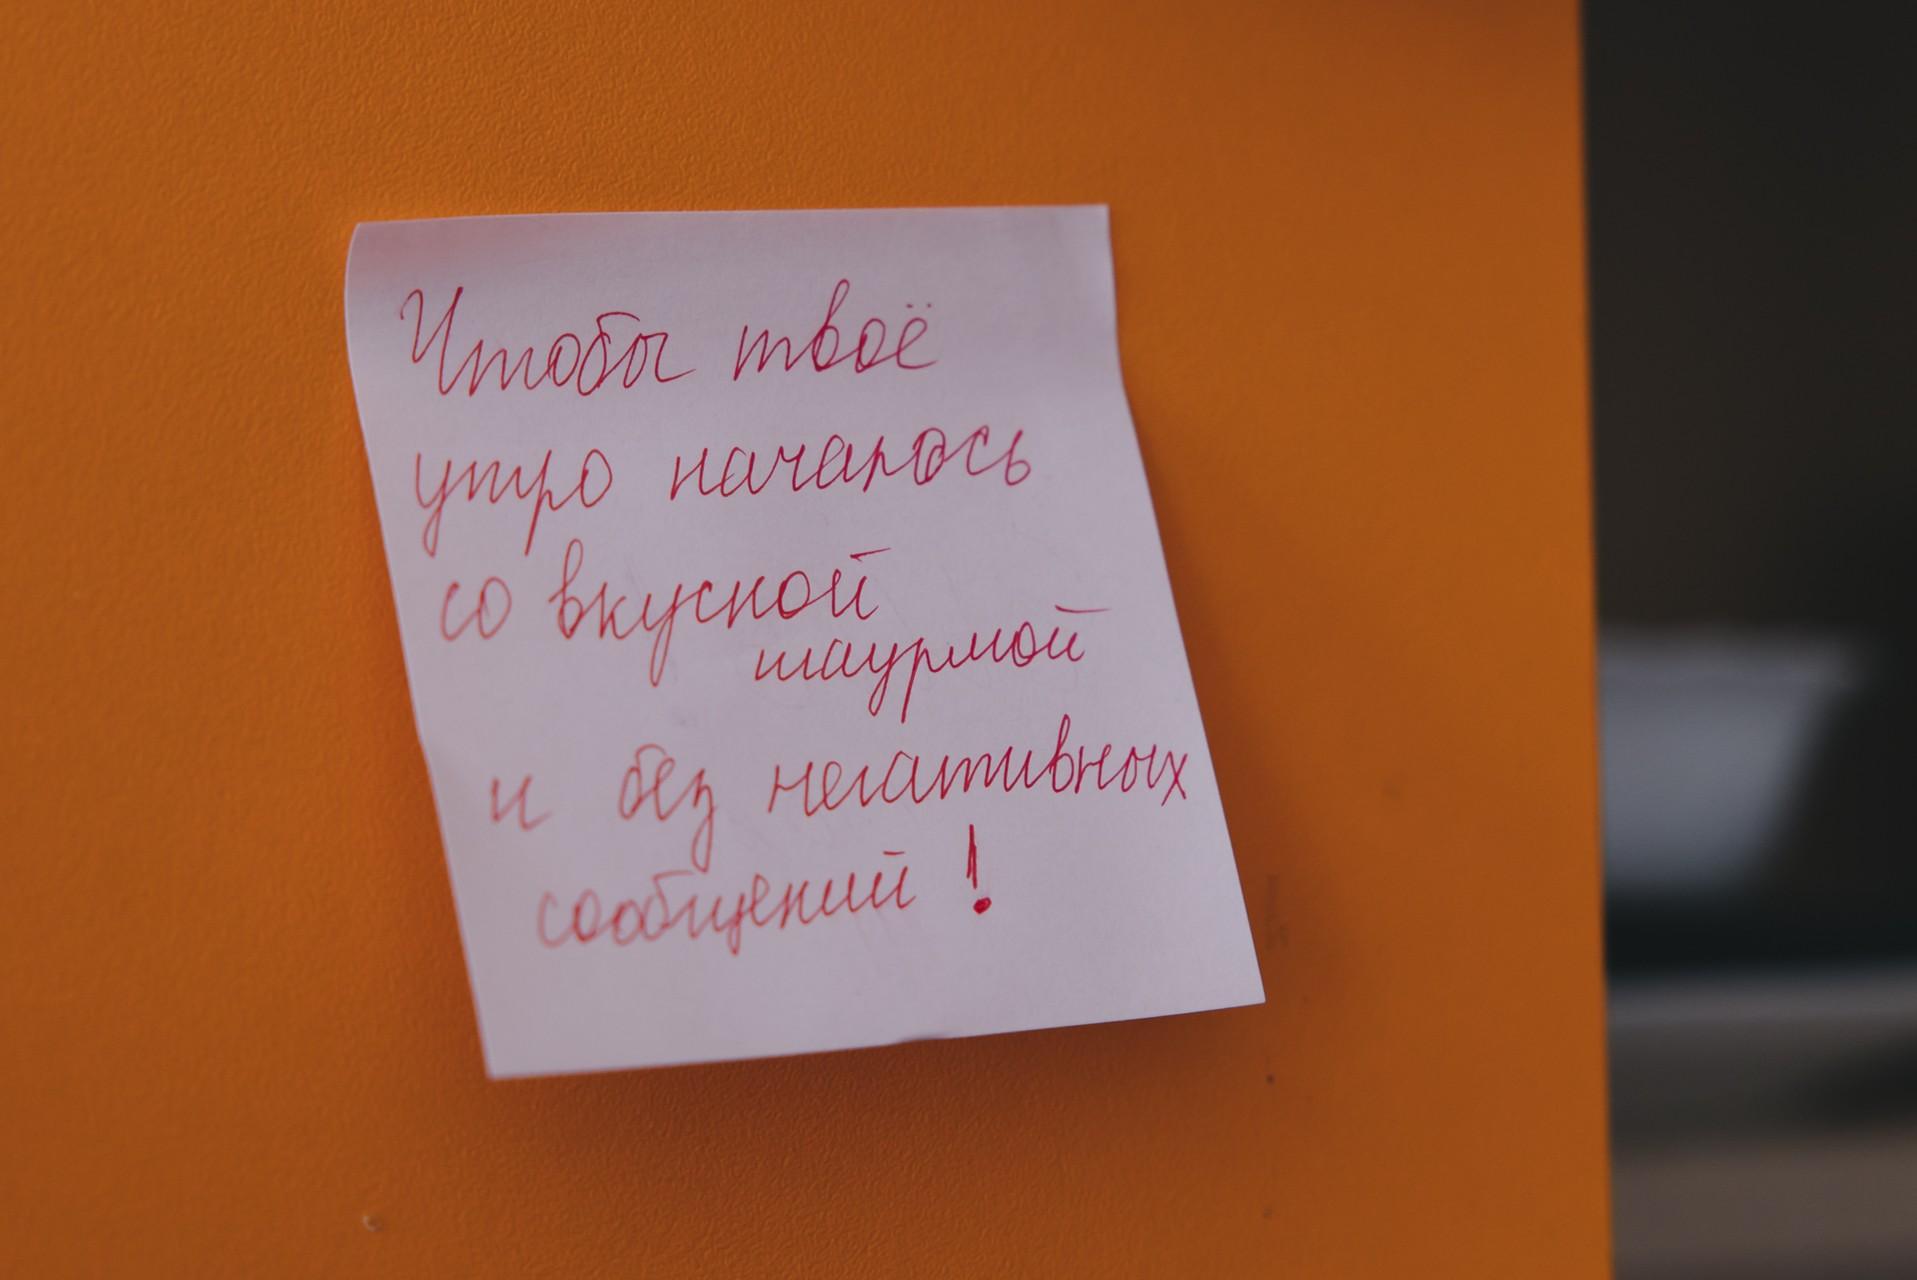 Чтобы твоё
утро началось
со вкусной
шаурмой
и без негативных
сообщений!